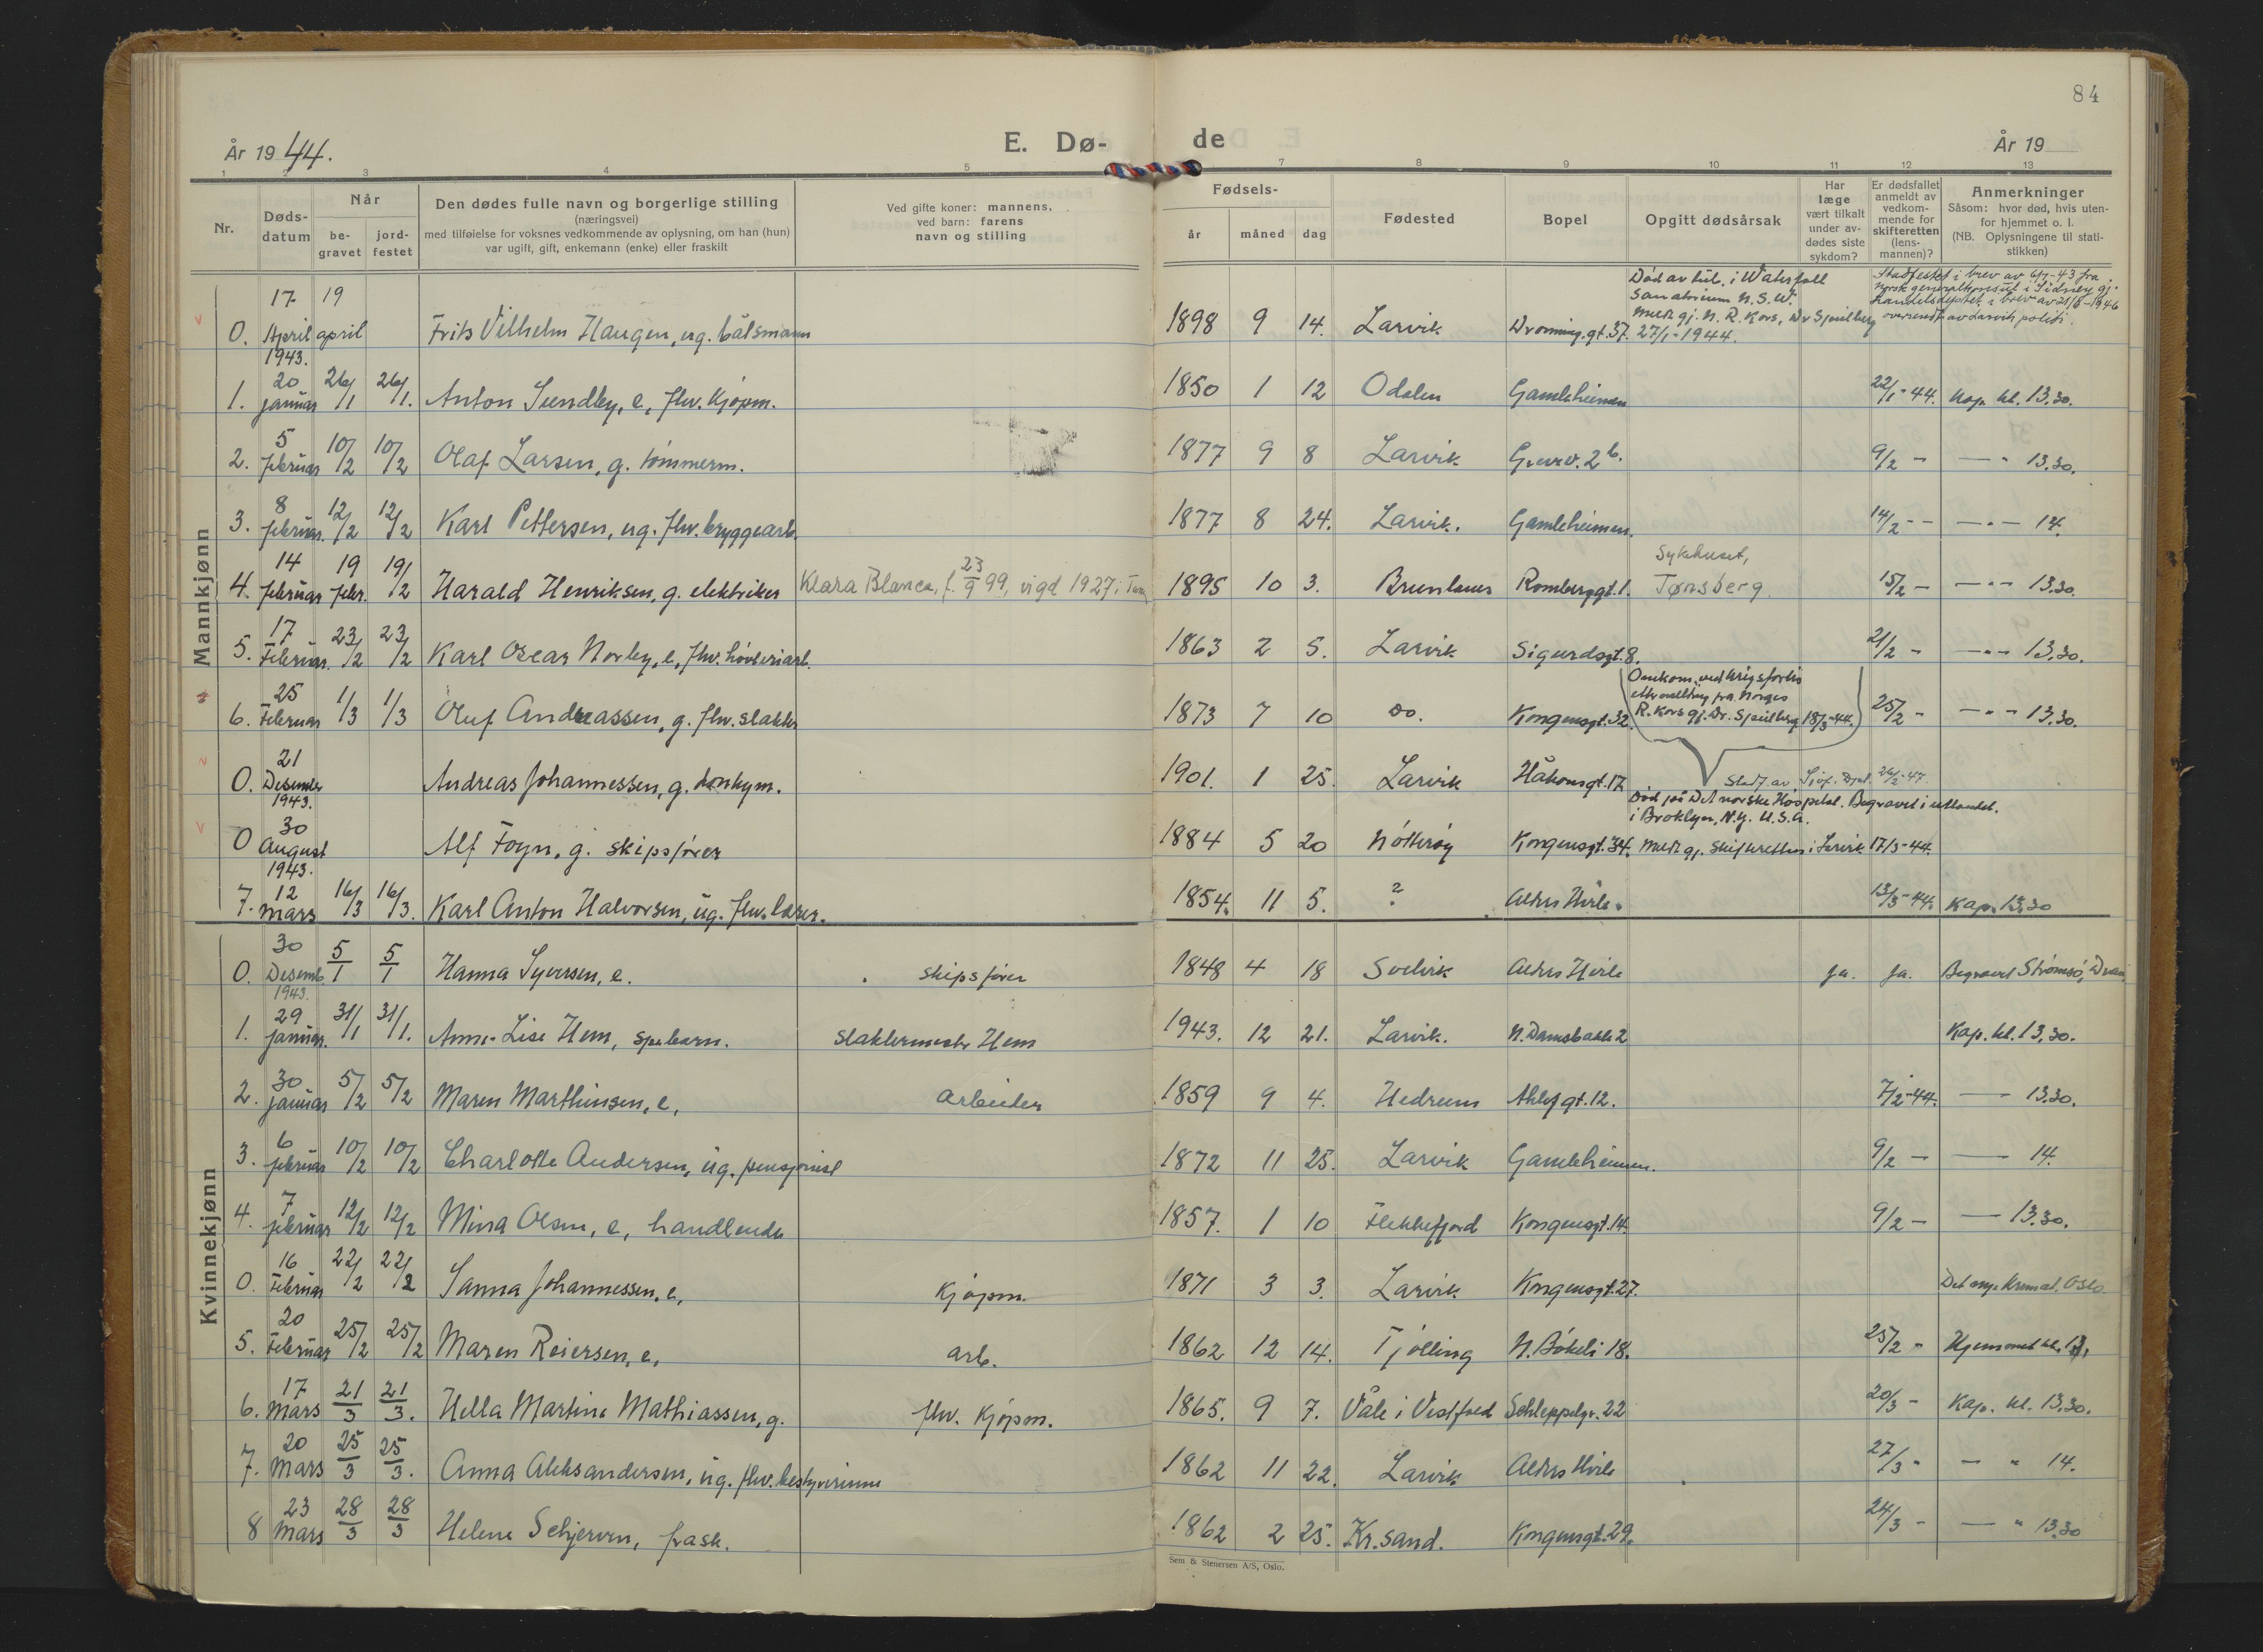 84
År 1944.
E. Dø-
de
År 19
1 2 3 4 5 7 8 9 10 11 12 13
Nr.
Døds-
datum
Når
be-
gravet
jord-
festet
Den dødes fulle navn og borgerlige stilling
(næringsvei)
med tilføielse for voksnes vedkommende av oplysning, om han (hun)
var ugift, gift, enkemann (enke) eller fraskilt
Ved gifte koner: mannens,
ved barn: farens
navn og stilling
Fødsels-
år måned dag
Fødested
Bopel
Opgitt dødsårsak
Har
læge
vært tilkalt
under av-
dødes siste
sykdom?
Er dødsfallet
anmeldt av
vedkom-
mende for
skifteretten
(lens-
mannen)?
Anmerkninger
Såsom: hvor død, hvis uten-
for hjemmet o. l.
(NB. Oplysningene til stati-
stikken)
Mannkjønn
0. 17 April 1943. 19 april Frits Vilhelm Haugen, ug. båtsmann 1898 9 14. Larvik Dronning.gt.37.
Død av tub. i Waterfall
Sanatorium N.S.W.
Medt gj. N. R. Kors, Dr Sjeilberg
27/1-1944.
Stadfestet i brev av 6/7-43 fra
Norsk generalkonsul i Sidney gj.
handelsdeptet i brev av 21/8-1946
oversendt av Larvik politi.
1. 20 januar 26/1 26/1. Anton Sundby, e, fhv. kjøpm. 1850 1 12 Odalen Gamleheimen 22/1-44. Kap. kl. 13,30.
2. 5 februar 10/2 10/2 Olaf Larsen, g. tømmerm. 1877 9 8 Larvik 9/2 - — " 13,30.
3. 8 februar. 12/2 12/2 Karl Pettersen, ug. fhv. bryggearb. 1877 8 24. Larvik. Gamleheimen. 14/2 - - — " — 14.
4. 14 februar 19 febr. 19/2 Harald Henriksen, g. elektriker Klara Blanca, f. 23/9 99, vigd 1927 i 1895 10 3. Brunlanes Romberggt.1. Sykehuset,
Tønsberg. 15/2 - — " — 13.30.
5. 17 Februar. 23/2 23/2 Karl Oscar Norby, e, fhv. høvleriarb. 1863 2 5. Larvik Sigurdsgt.8. 21/2 - — " — 13,30.
6. 25 Februar 1/3 1/3 Oluf Andreassen, g. fhv. slakter 1873 7 10 Do. Kongensgt.32. 25/2 - — " — 13,30.
Omkom. ved krigsforlis
etter melding fra Norges
R. Kors gj. Dr. Sjeilberg 18/3-44.
0. 21 Desember 1943. Andreas Johannessen, g. donkym. 1901. 1 25. Larvik Håkonsgt.17 Stadf. av Sjøf. Dpt. 26/2-47.
0 30 August 1943. Alf Foyn, g. skipsfører 1884 5 20 Nøtterøy Kongensgt.34.
Død på Det norske Hospital. Begravet i utlandet.
i Broklyn, N.Y. U.S.A.
Medt gj. Skifteretten i Larvik 17/3-44.
7. 12 mars 16/3 16/3. Karl Anton Halvorsen, ug. fhv. lærer. 1854. 11 5. ? Alders Hvile. 13/3-44. Kap. 13,30
Kvinnekjønn
0. 30 Desemb. 1943. 5/1 5/1 Hanna Syversen, e. skipsfører 1848 4 18 Svelvik Alders Hvile ja. ja. Begravet Strømsø, Dram.
1. 29 januar. 31/1 31/1. Anne-Lise Hem, spebarn. slaktermester Hem 1943. 12 21. Larvik. N. Damsbakke 2 Kap. kl. 13,30.
2. 30 januar 5/2 5/2 Maren Marthinsen, e, arbeider 1859 9 4. Hedrum gt.12. 7/2-44. — 13.30.
3. 6 februar 10/2 10/2 Charlotte Andersen, ug. pensjonist 1872 11 25. Larvik Gamleheimen. 9/2 - — 14.
4. 7 februar 12/2 12/2 Mina Olsen, e, handlende 1857. 1 10 Flekkefjord Kongensgt.14. 9/2 - — 13.30.
0. 16 Februar 22/2 22/2 Sanna Johannessen, e, kjøpm. 1871 3 3. Larvik Kongensgt.27. Det nye kremat. Oslo.
5. 20 Februar 25/2 25/2 Maren Reiersen, e, arb. 1862 12 14. Tjølling N. Bøkeli 18. 25/2 - Hjemmet kl. 13,
6. 17 Mars 21/3 21/3. Hella Martine Mathiassen, g. fhv. kjøpm. 1865. 9 7. Våle i Vestfold Schleppelgr. 22 20/3 - Kap. kl. 13.30.
7. 20 mars 25/3 25/3. Anna Aleksandersen, ug. fhv. bestyrerinne 1862 11 22. Larvik Alders Hvile 27/3 - — " 14.
8 23 mars 28/3 28/3 Helene Schjerven, frask. 1862 2 25. Kr.sand. Kongensgt.29. 24/3 - — " 13.30
Sem & Stenersen A/S, Oslo.